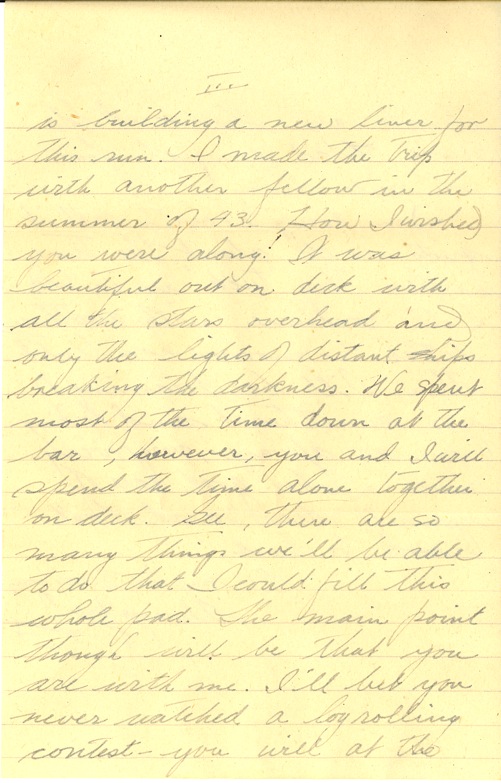 III
is building a new liner for
this run. I made the trip
with another fellow in the
summer of 43. How I wished
you were along! It was
beautiful out on deck with
all the stars overhead and
only the lights of distant ships
breaking the darkness. We spent
most of the time down at the
bar, however, you and I will
spend the time alone together
on deck. Gee, there are so
many things we'll be able
to do that I could fill this
whole pad. The main point
though will be that you
are with me. I'll bet you
never watched a log rolling
contest - you will at the